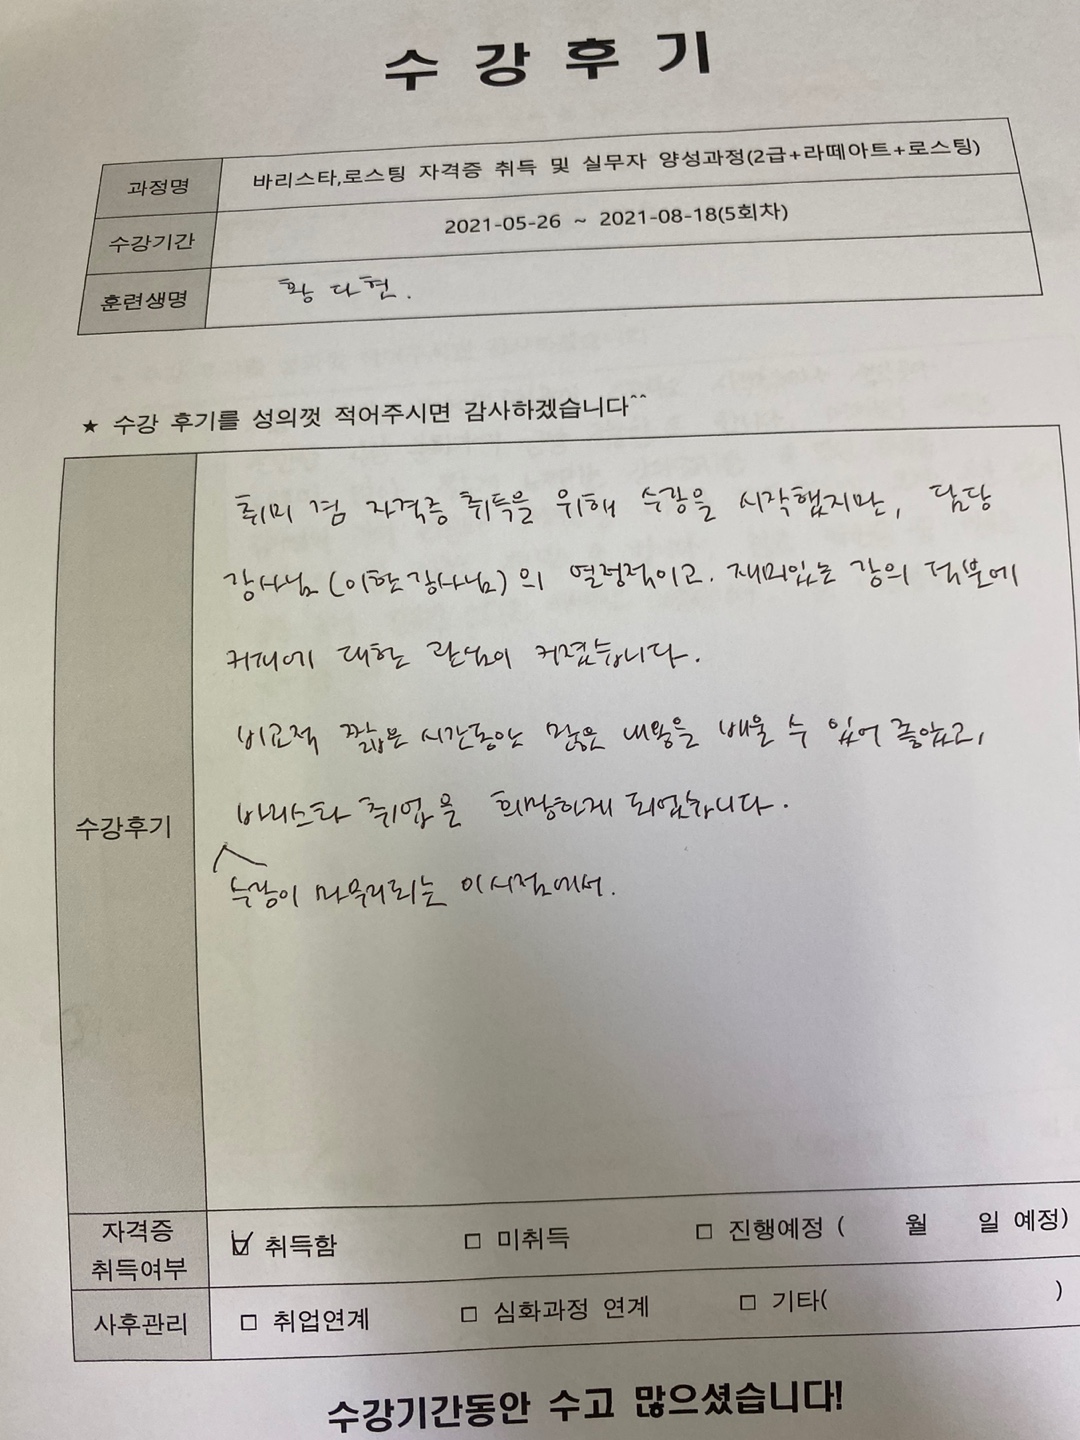 수 강 후 기
과정명 바리스타,로스팅 자격증 취득 및 실무자 양성과정(2급+라떼아트+로스팅)
수강기간 2021-05-26 ~ 2021-08-18(5회차)
훈련생명 황다현.
★ 수강 후기를 성의껏 적어주시면 감사하겠습니다^^
취미 겸 자격증 취득을 위해 수강을 시작했지만, 담당
강사님(이한강사님)의 열정적이고. 재미있는 강의 덕분에
커피에 대한 관심이 커졌습니다.
비교적 짧은 시간동안 많은 내용을 배울 수 있어 좋았고,
수강후기
바리스타 취업을 희망하게 되었습니다.
수강이 마무리되는 이시점에서.
자격증
취득여부
취득함 미취득 진행예정 ( 월 일 예정)
사후관리 취업연계 심화과정 연계 기타( )
수강기간동안 수고 많으셨습니다!